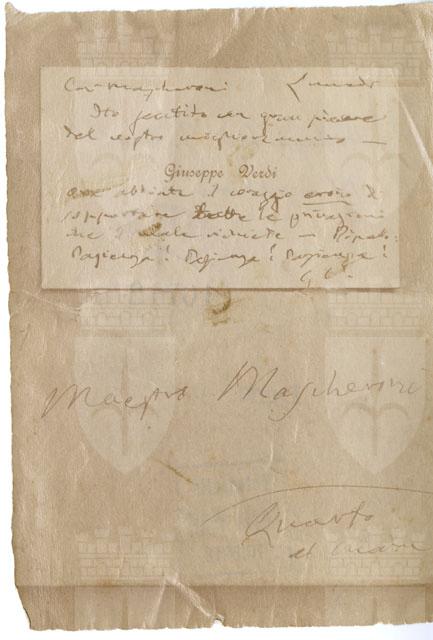 Car Mascheroni Lunedì
Ho sentito con gran piacere
del vostro miglioramento —
Giuseppe Verdi
abbiate il coraggio eroico di
sopportare le privazioni
che il male richiede — Ripeto:
Pazienza! Pazienza! Pazienza!
G. V.
Maestro Mascheroni
Quarto
al mare